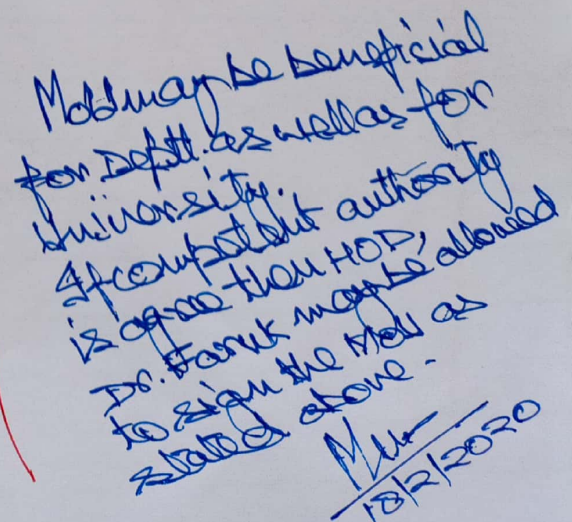 MoU may be beneficial
for Deptt. as well as for
University.
If competent authority
is agree then HOD,
Dr. Faruk may be allowed
to sign the MoU as
stated above.
18/2/2020